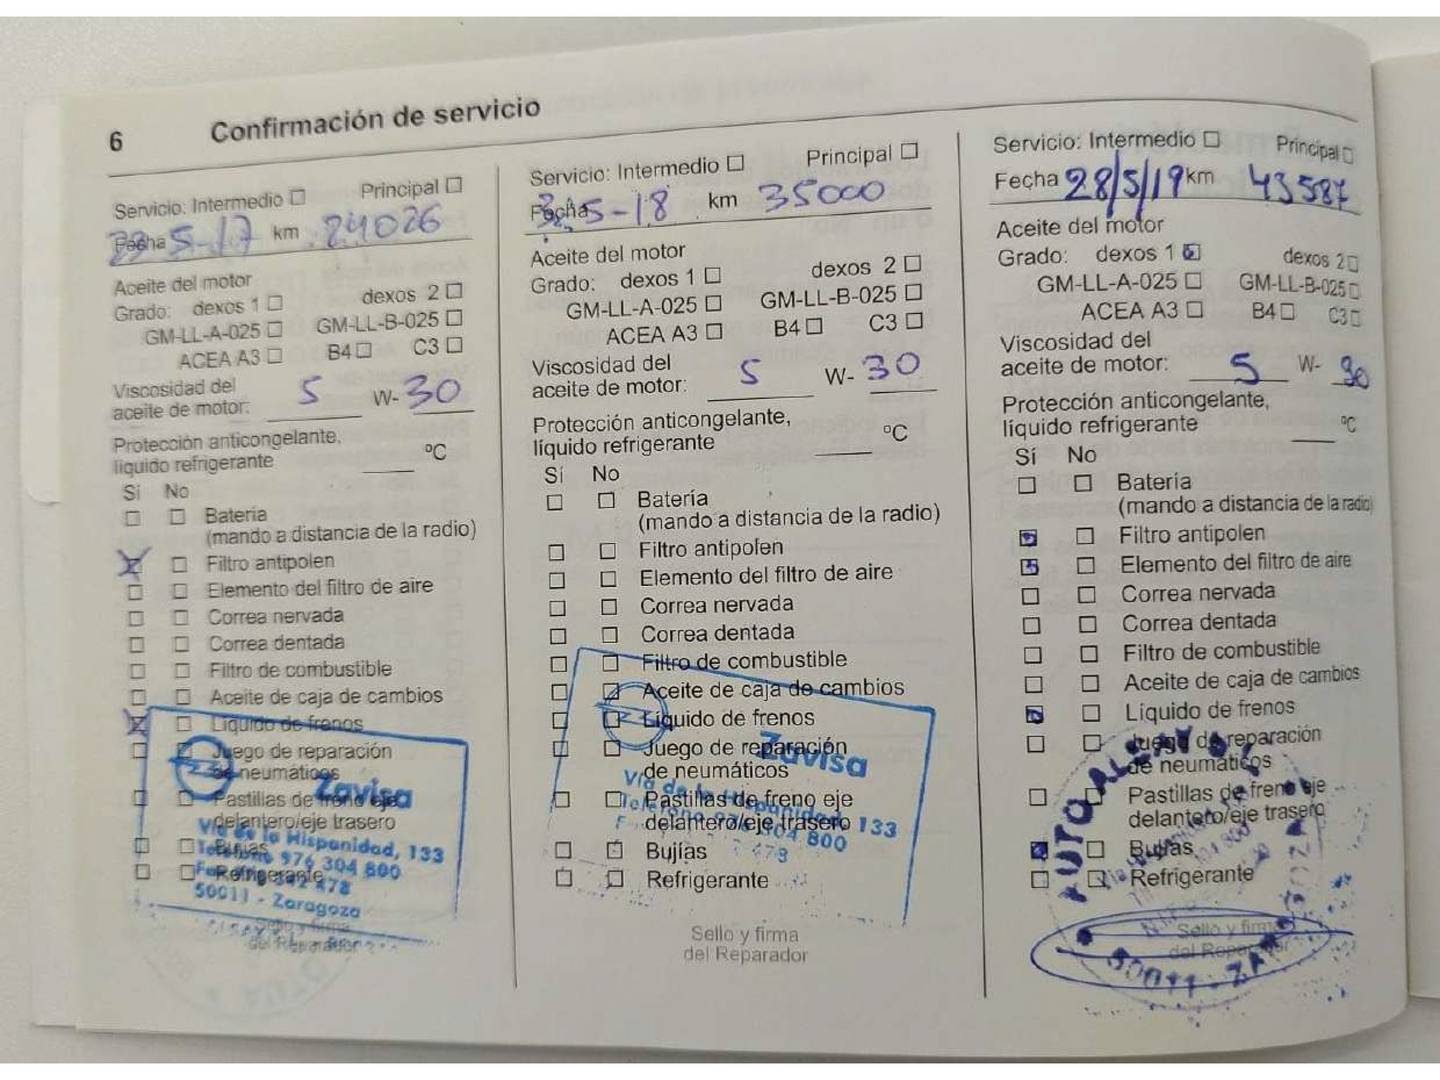 6 Confirmación de servicio
Servicio: Intermedio Principal
Fecha 5-17 km 24026
Aceite del motor
Grado: dexos 1 dexos 2
GM-LL-A-025 GM-LL-B-025
ACEA A3 B4 C3
Viscosidad del
aceite de motor: 5 W- 30
Protección anticongelante,
líquido refrigerante ºC
Sí No
Batería
(mando a distancia de la radio)
Filtro antipolen
Elemento del filtro de aire
Correa nervada
Correa dentada
Filtro de combustible
Aceite de caja de cambios
Líquido de frenos
Juego de reparación
de neumáticos
Pastillas de freno eje
delantero/eje trasero
Bujías
Refrigerante
Zavisa
Vía de la Hispanidad, 133
Teléfono 976 304 800
342 478
50011 - Zaragoza
Sello y firma
del Reparador
Servicio: Intermedio Principal
Fecha 5-18 km 35000
Aceite del motor
Grado: dexos 1 dexos 2
GM-LL-A-025 GM-LL-B-025
ACEA A3 B4 C3
Viscosidad del
aceite de motor: 5 W- 30
Protección anticongelante,
líquido refrigerante ºC
Sí No
Batería
(mando a distancia de la radio)
Filtro antipolen
Elemento del filtro de aire
Correa nervada
Correa dentada
Filtro de combustible
Aceite de caja de cambios
Líquido de frenos
Juego de reparación
de neumáticos
Pastillas de freno eje
delantero/eje trasero
Bujías
Refrigerante
Zavisa
Vía de la Hispanidad, 133
Teléfono 976 304 800
478
Sello y firma
del Reparador
Servicio: Intermedio Principal
Fecha 28/5/19 km 43587
Aceite del motor
Grado: dexos 1 dexos 2
GM-LL-A-025 GM-LL-B-025
ACEA A3 B4 C3
Viscosidad del
aceite de motor: 5 W- 30
Protección anticongelante,
líquido refrigerante ºC
Sí No
Batería
(mando a distancia de la radio)
Filtro antipolen
Elemento del filtro de aire
Correa nervada
Correa dentada
Filtro de combustible
Aceite de caja de cambios
Líquido de frenos
Juego de reparación
de neumáticos
Pastillas de freno eje
delantero/eje trasero
Bujías
Refrigerante
50011 - ZARAGOZA
Sello y firma
del Reparador